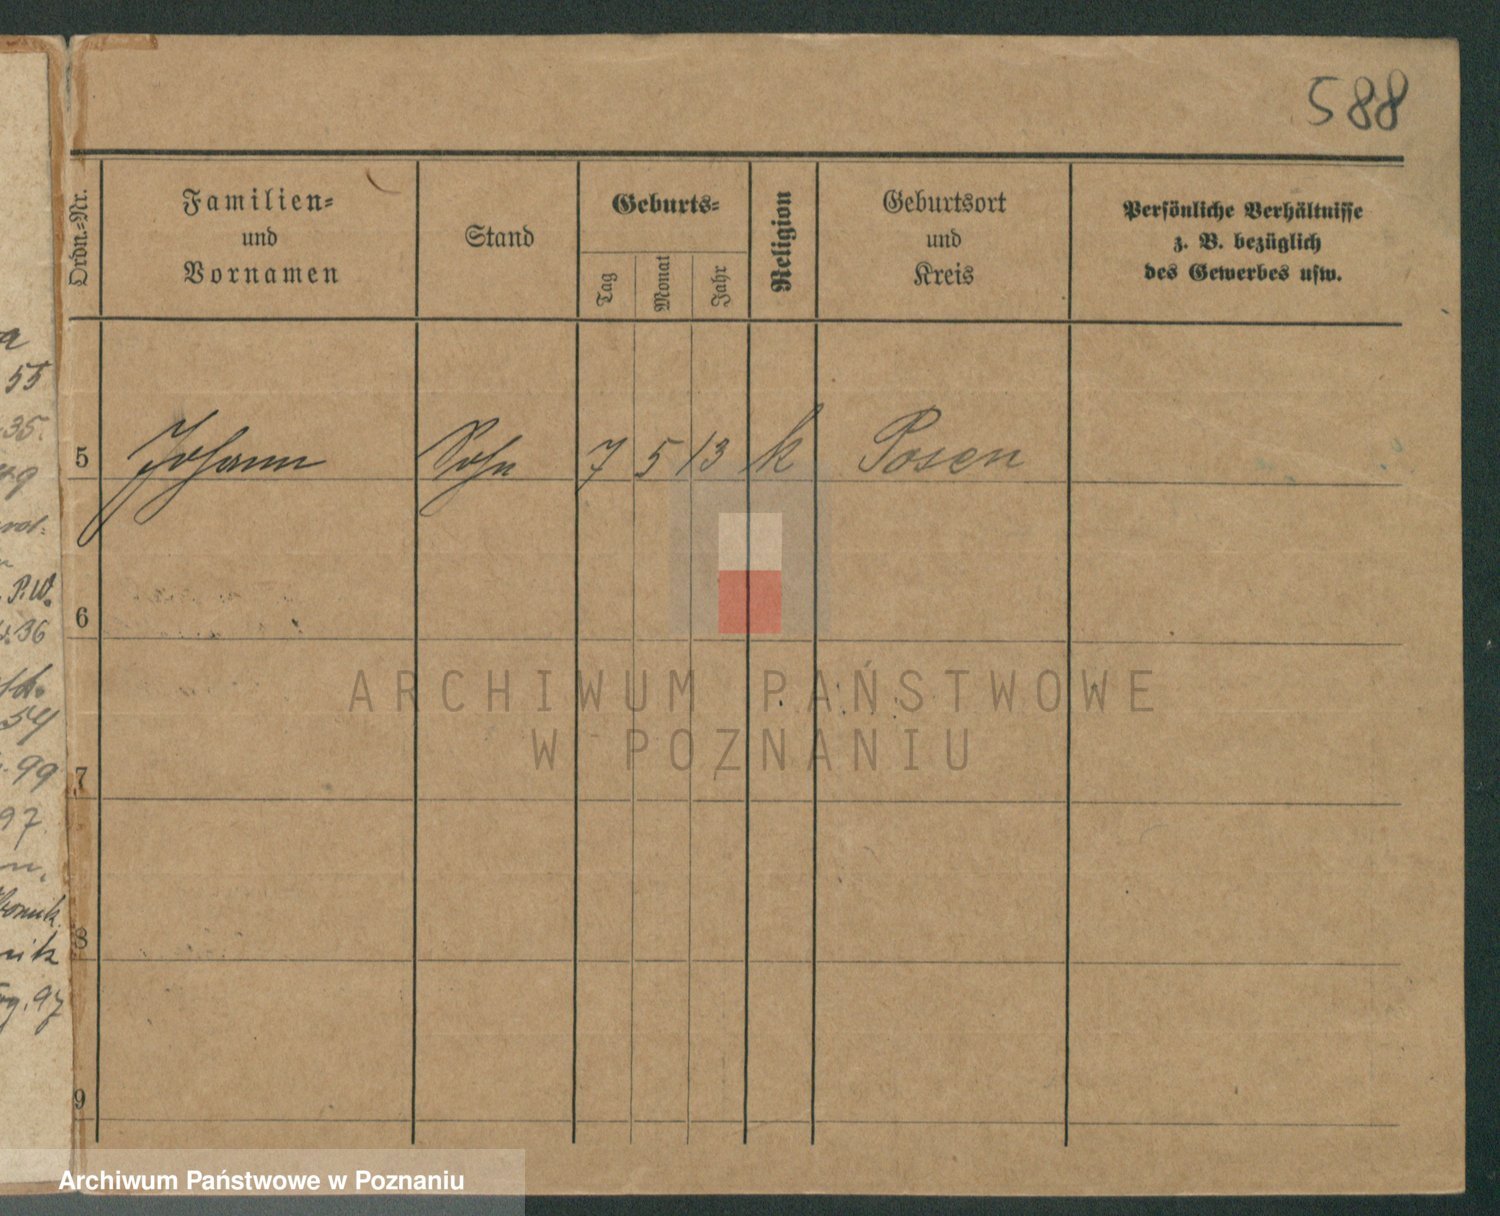 588
Ordn.-Nr.
Familien-
und
Vornamen
Stand
Geburts-
Tag
Monat
Jahr
Religion
Geburtsort
und
Kreis
Persönliche Verhältnisse
z. B. bezüglich
des Gewerbes usw.
5 Johann Sohn 7 5 13 k Posen
6
7
8
9
55
35.
P.W.
36
54
99
97
97
ARCHIWUM PAŃSTWOWE
W POZNANIU
Archiwum Państwowe w Poznaniu